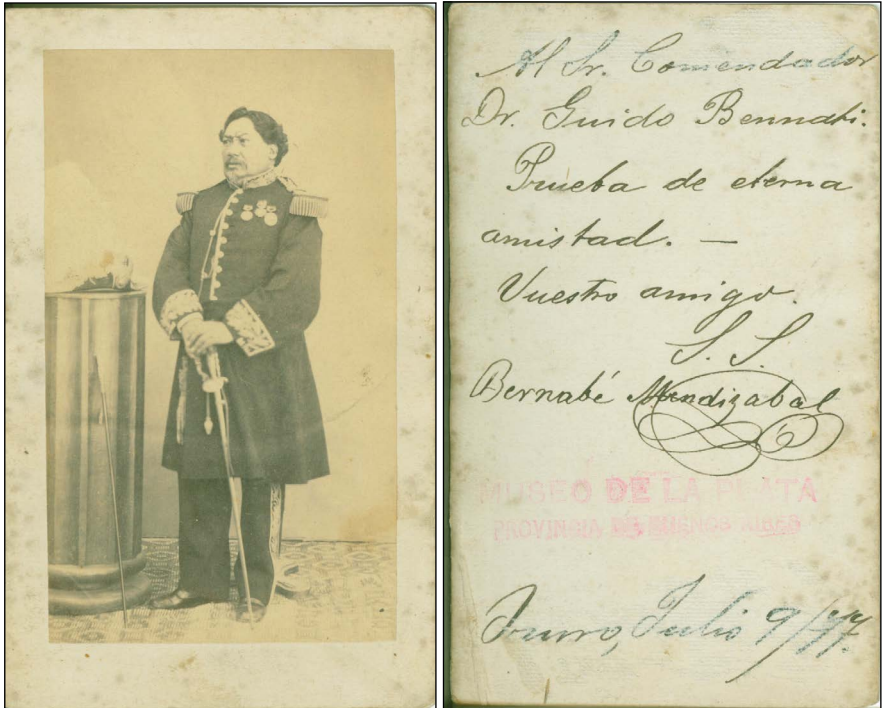 Al Sr. Comendador
Dr. Guido Bennati.
Prueba de eterna
amistad. —
Vuestro amigo.
S. S.
Bernabé Mendizabal
MUSEO DE LA PLATA
PROVINCIA DE BUENOS AIRES
Oruro, Julio 9/77.